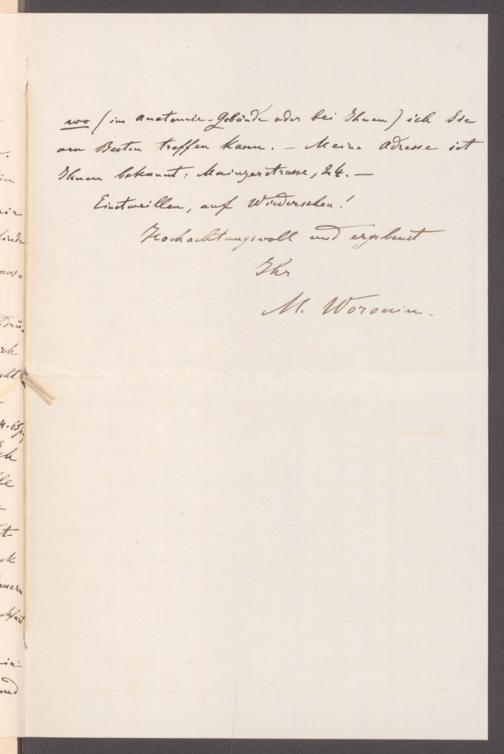 wo (im Anatomie-Gebäude oder bei Ihnen) ich Sie
am Besten treffen kann. — Meine Adresse ist
Ihnen bekannt: Mainzerstrasse, 24. —
Einstweillen, auf Wiedersehen!
Hochachtungsvoll und ergebenst
Ihr
M. Woronin.